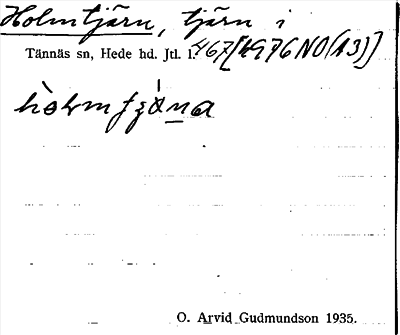 Holmtjärn, tjärn i
Tännäs sn, Hede hd. Jtl. l. 467[4976NO(A3)]
O. Arvid Gudmundson 1935.